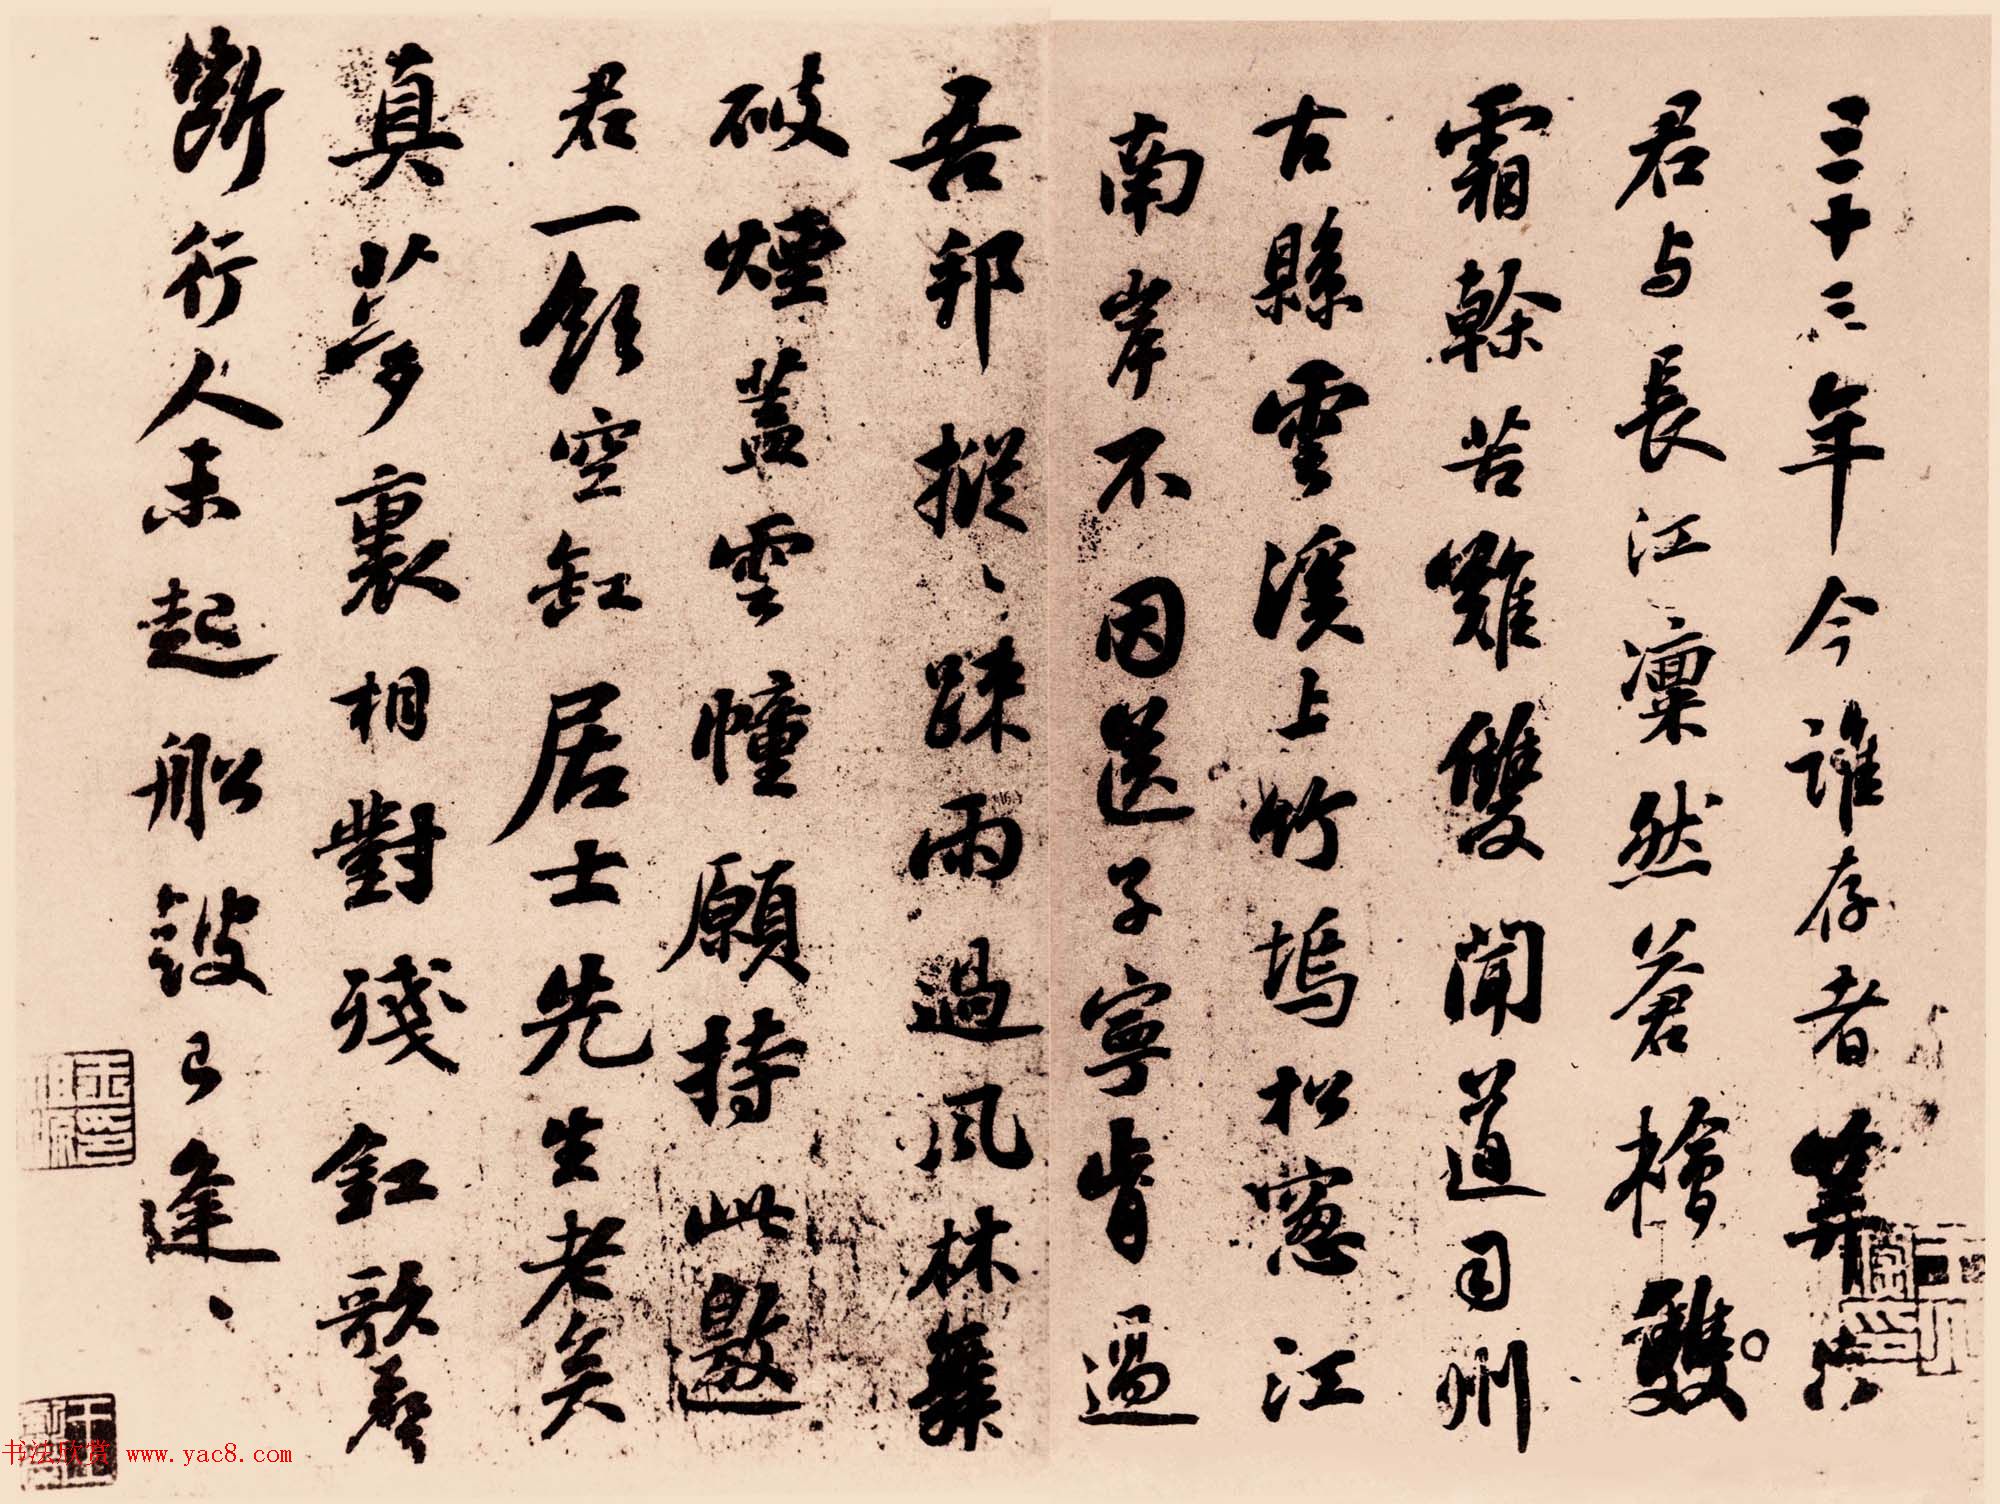 三十三年今誰存者算只
君与長江凜然蒼檜雙
霜幹苦難雙聞道司州
古縣雲溪上竹塢松窓江
南岸不因送子寧肯過
吾邦摐〻踈雨過風林舞
破煙蓋雲幢願持此邀
君一飲空缸居士先生老矣
真夢裏相對殘釭歌聲
斷行人未起船皷已逢〻
书法欣赏 www.yac8.com